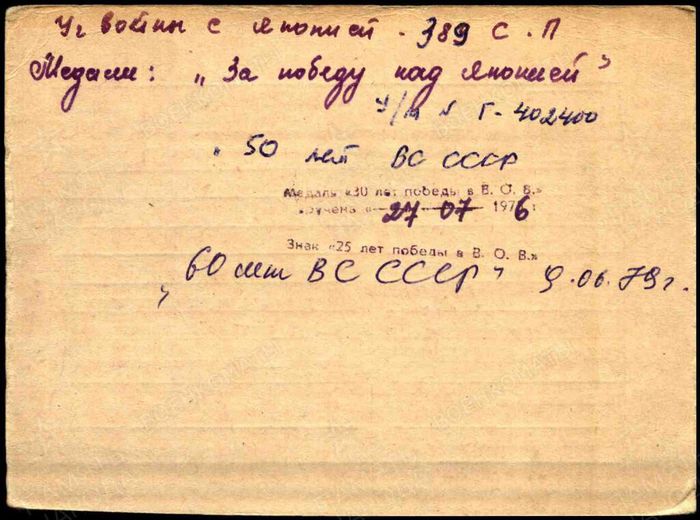 Уч войны с Японией. 389 С.П
Медали: „За победу над Японией"
У/л № Г-402400
„50 лет ВС СССР
Медаль «30 лет победы в В. О. В.»
вручена «27 07 1976 г
Знак «25 лет победы в В. О. В.»
„60 лет ВС СССР" 9.06.79г.
ВОЕНКОМАТЫ